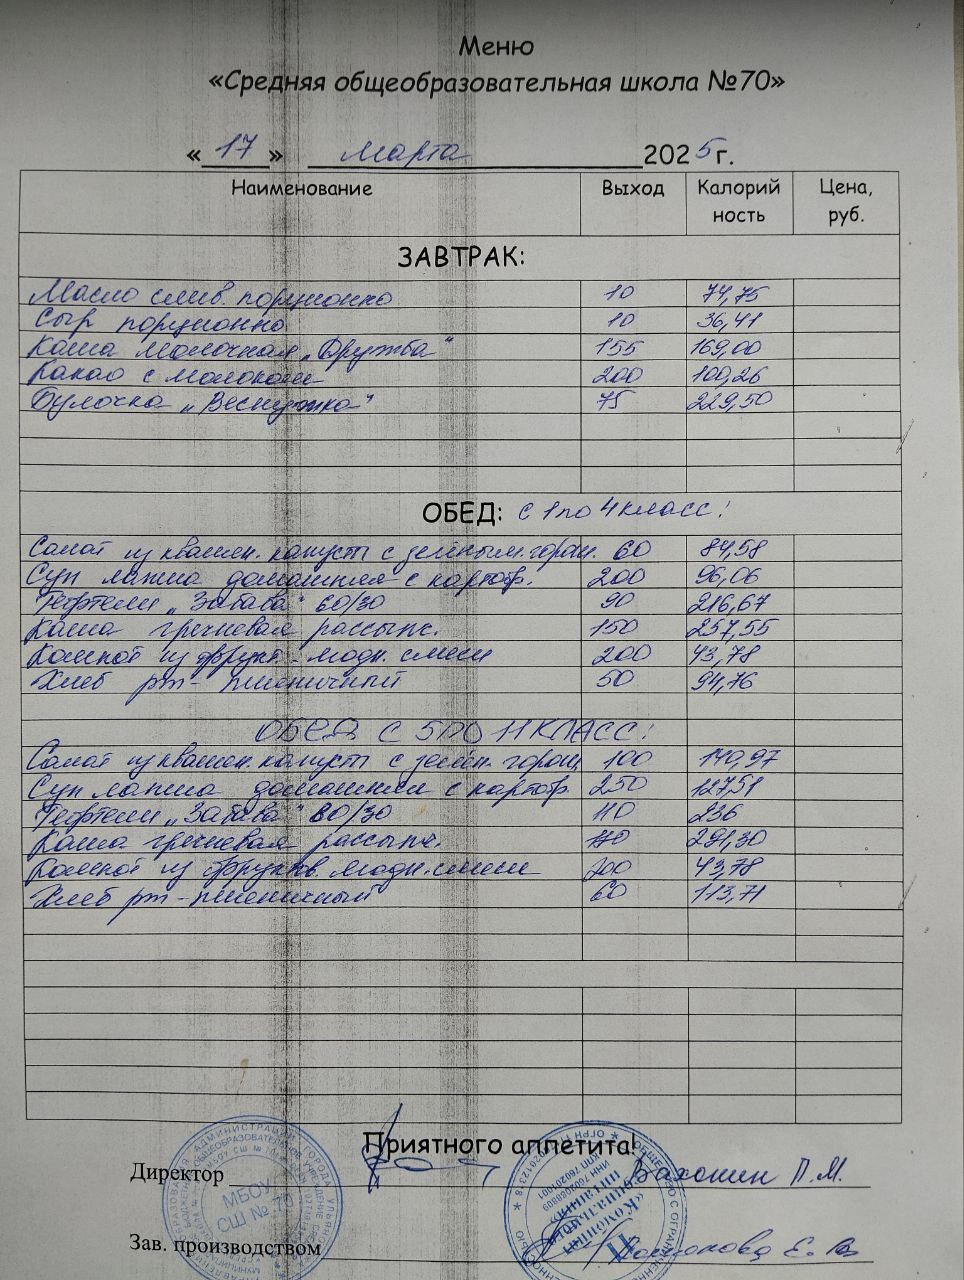 Меню
«Средняя общеобразовательная школа №70»
«17» марта 2025г.
Наименование Выход Калорийность Цена, руб.
ЗАВТРАК:
Масло слив. порционно 10 74,75
Сыр порционно 10 36,41
Каша молочная „Дружба“ 155 169,00
Какао с молоком 200 100,26
Булочка „Веснушка“ 75 229,50
ОБЕД: с 1 по 4 класс!
Салат из квашен. капусты с зелёным. горош. 60 84,58
Суп лапша домашняя с картоф. 200 96,06
Тефтели „Забава“ 60/30 90 216,67
Каша гречневая рассыпч. 150 257,55
Компот из фрукт.-ягодн. смеси 200 43,78
Хлеб рж-пшеничный 50 94,76
ОБЕД С 5 ПО 11 КЛАСС!
Салат из квашен. капусты с зелён. горош 100 140,97
Суп лапша домашняя с картоф. 250 127,51
Тефтели „Забава“ 80/30 110 236
Каша гречневая рассыпч. 291,30
Компот из фруктов. ягодн. смеси 200 43,78
Хлеб рж-пшеничный 60 113,71
Приятного аппетита!
Директор П.М.
Зав. производством Е.В.
МБОУ
СШ № 70